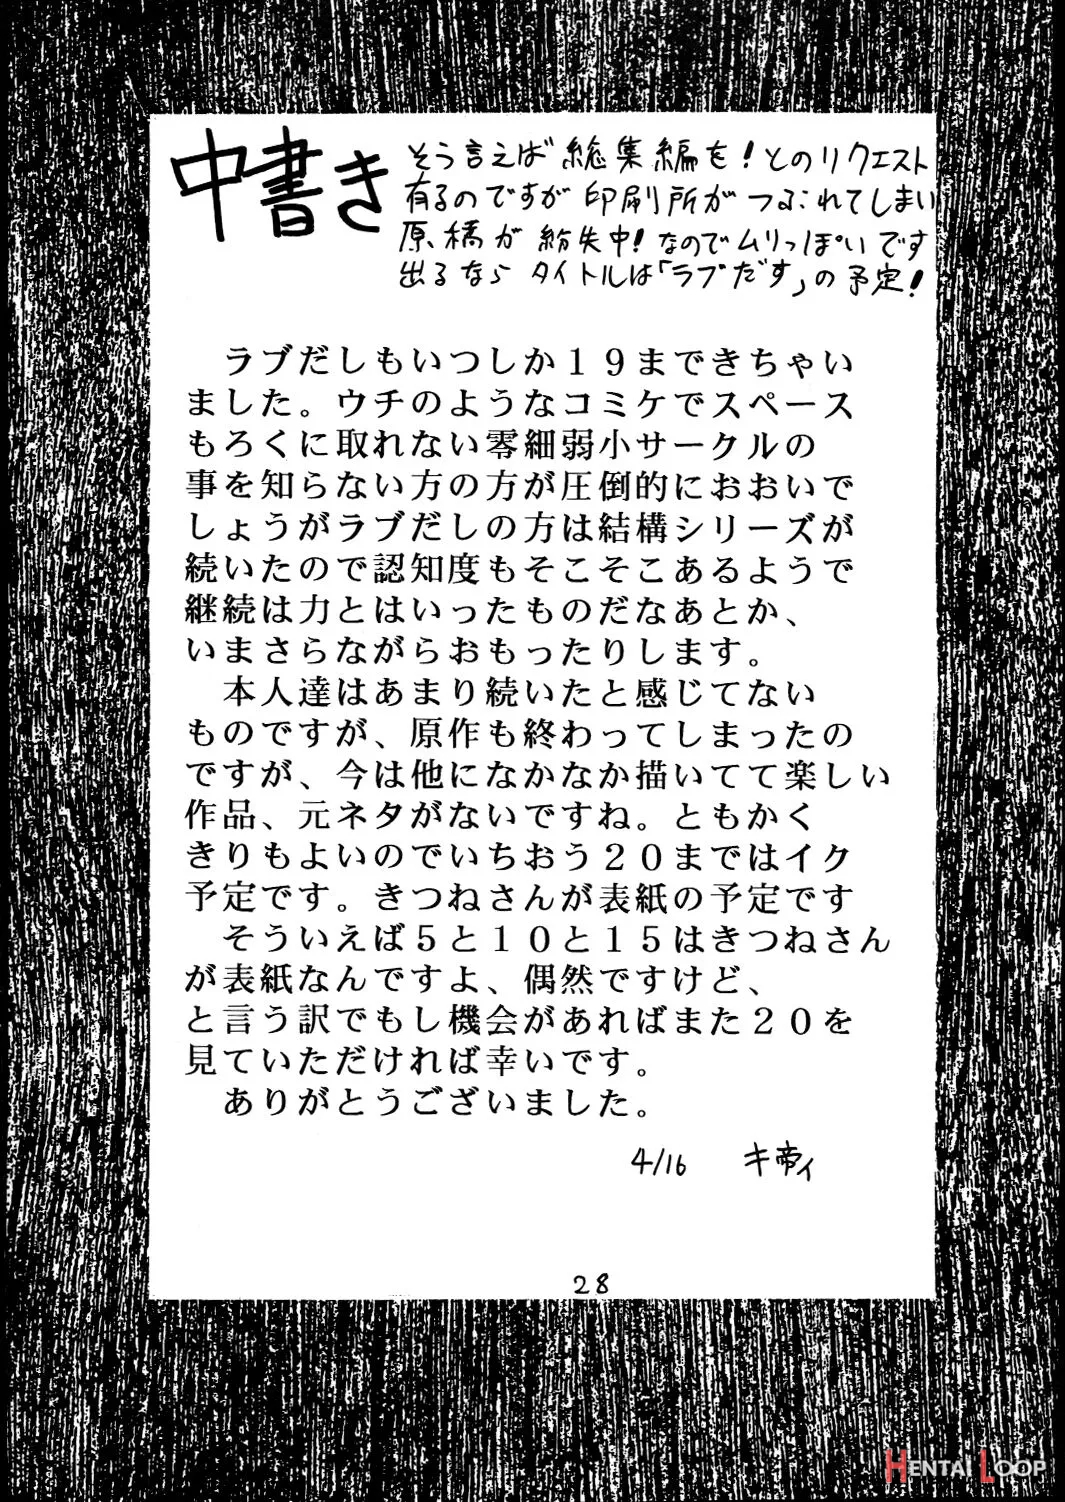 中書き
そう言えば総集編を!とのリクエスト
有るのですが印刷所がつぶれてしまい
原稿が紛失中!なのでムリっぽいです
出るならタイトルは「ラブだす」の予定!
ラブだしもいつしか19まできちゃい
ました。ウチのようなコミケでスペース
もろくに取れない零細弱小サークルの
事を知らない方の方が圧倒的におおいで
しょうがラブだしの方は結構シリーズが
続いたので認知度もそこそこあるようで
継続は力とはいったものだなあとか、
いまさらながらおもったりします。
本人達はあまり続いたと感じてない
ものですが、原作も終わってしまったの
ですが、今は他になかなか描いてて楽しい
作品、元ネタがないですね。ともかく
きりもよいのでいちおう20まではイク
予定です。きつねさんが表紙の予定です
そういえば5と10と15はきつねさん
が表紙なんですよ、偶然ですけど、
と言う訳でもし機会があればまた20を
見ていただければ幸いです。
ありがとうございました。
4/16 キ帝ィ
28
HENTAI LOOP